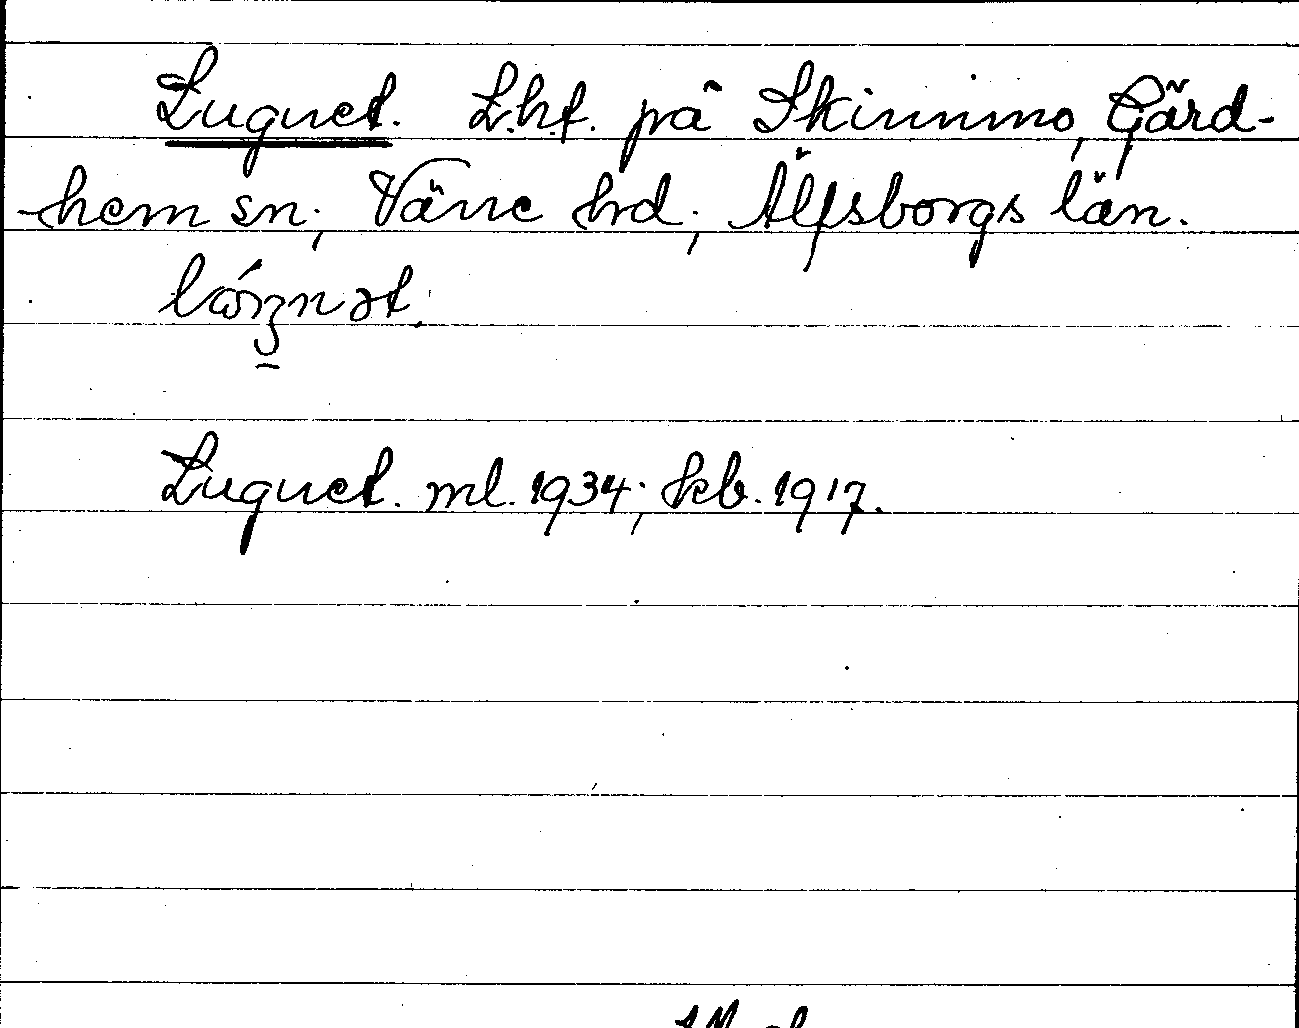 Lugnet. L.h.t. på Skinnmo, Gärd-
hem sn; Väne hd; Älfsborgs län.
Lugnet. ml. 1934; kb. 1917.